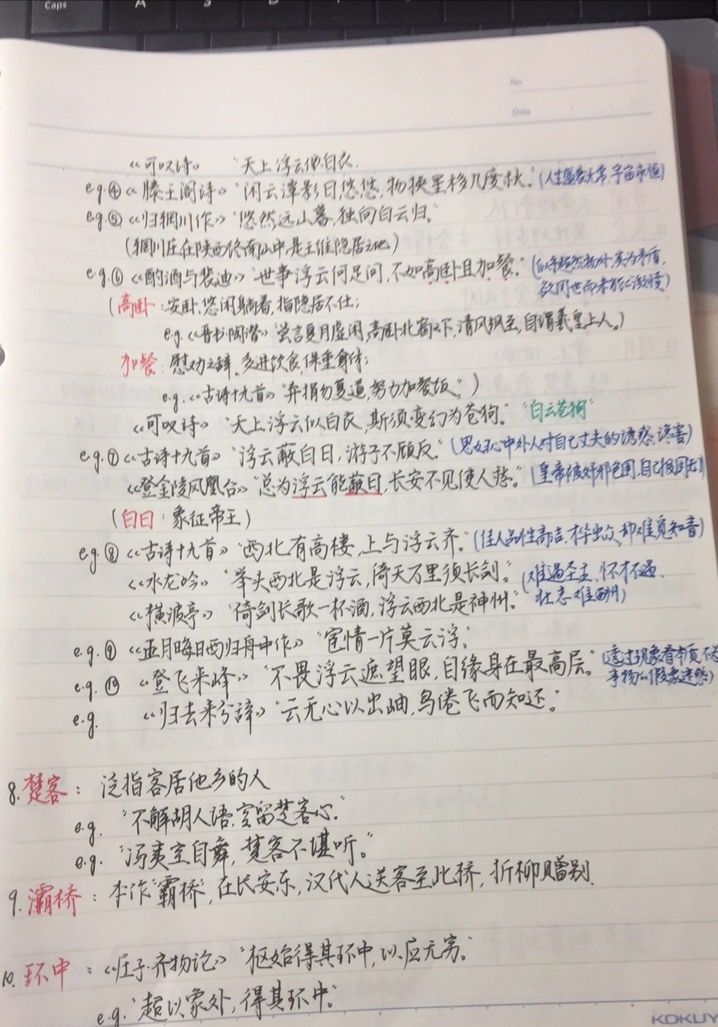 No
Date
《可叹诗》 "天上浮云似白衣.
e.g.④《滕王阁诗》"闲云潭影日悠悠,物换星移几度秋。"(人生盛衰无常,宇宙永恒)
e.g.⑤《归辋川作》"悠然远山暮,独向白云归。"
(辋川庄在陕西终南山中,是王维隐居之地)
e.g.⑥《酌酒与裴迪》"世事浮云何足问,不如高卧且加餐。"(似乎超然物外,实为矛盾,
欲问世而未能之激愤)
(高卧:安卧,悠闲躺着,指隐居不仕;
e.g.《晋书·陶潜》"尝言夏月虚闲,高卧北窗之下,清风飒至,自谓羲皇上人。)
加餐:慰劝之辞,多进饮食,保重身体;
e.g.《古诗十九首》"弃捐勿复道,努力加餐饭。")
《可叹诗》"天上浮云似白衣,斯须变幻为苍狗。" "白云苍狗"
e.g.⑦《古诗十九首》"浮云蔽白日,游子不顾反。"(思妇心中外人对自己丈夫的诱惑,谗害)
《登金陵凤凰台》"总为浮云能蔽日,长安不见使人愁。"(皇帝被奸邪包围,自己报国无
(白日:象征帝王)
e.g.⑧《古诗十九首》"西北有高楼,上与浮云齐。"(佳人品性高洁,才华出众,却难觅知音)
《水龙吟》"举头西北是浮云,倚天万里须长剑。"(难遇圣主,怀才不遇,
《横波亭》"倚剑长歌一杯酒,浮云西北是神州。" 壮志难酬)
e.g.⑨《正月晦日西归舟中作》"宦情一片莫云浮."
e.g.⑩《登飞来峰》"不畏浮云遮望眼,自缘身在最高层。"(透过现象看本质,不
事物的假象迷惑)
e.g. 《归去来兮辞》"云无心以出岫,鸟倦飞而知还。"
8.楚客:泛指客居他乡的人
e.g. "不解胡人语,空留楚客心."
e.g. "冯夷空自舞,楚客不堪听。"
9.灞桥:本作"霸桥",在长安东,汉代人送客至此桥,折柳赠别.
10.环中:《庄子·齐物论》"枢始得其环中,以应无穷。"
e.g."超以象外,得其环中."
KOKUY